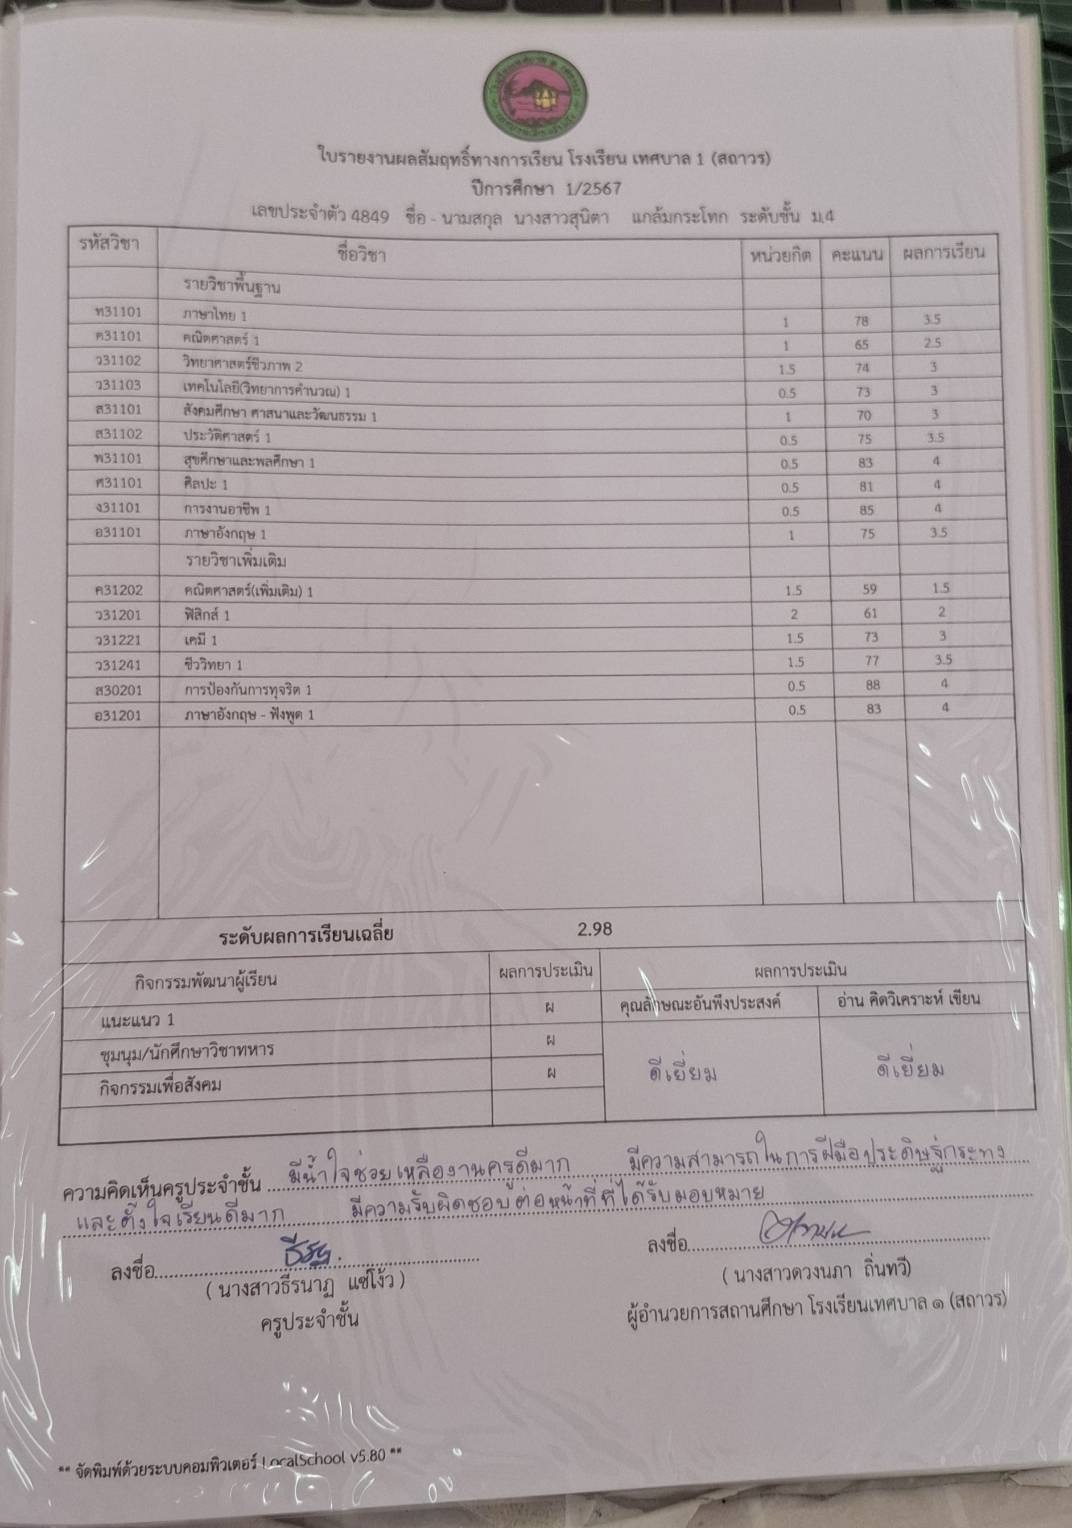 ใบรายงานผลสัมฤทธิ์ทางการเรียน โรงเรียน เทศบาล 1 (สถาวร)
ปีการศึกษา 1/2567
เลขประจำตัว 4849 ชื่อ - นามสกุล นางสาวสุนิตา แกล้มกระโทก ระดับชั้น ม.4
รหัสวิชา ชื่อวิชา หน่วยกิต คะแนน ผลการเรียน
รายวิชาพื้นฐาน
ท31101 ภาษาไทย 1 1 78 3.5
ค31101 คณิตศาสตร์ 1 1 65 2.5
ว31102 วิทยาศาสตร์ชีวภาพ 2 1.5 74 3
ว31103 เทคโนโลยี(วิทยาการคำนวณ) 1 0.5 73 3
ส31101 สังคมศึกษา ศาสนาและวัฒนธรรม 1 1 70 3
ส31102 ประวัติศาสตร์ 1 0.5 75 3.5
พ31101 สุขศึกษาและพลศึกษา 1 0.5 83 4
ศ31101 ศิลปะ 1 0.5 81 4
ง31101 การงานอาชีพ 1 0.5 85 4
อ31101 ภาษาอังกฤษ 1 1 75 3.5
รายวิชาเพิ่มเติม
ค31202 คณิตศาสตร์(เพิ่มเติม) 1 1.5 59 1.5
ว31201 ฟิสิกส์ 1 2 61 2
ว31221 เคมี 1 1.5 73 3
ว31241 ชีววิทยา 1 1.5 77 3.5
ส30201 การป้องกันการทุจริต 1 0.5 88 4
อ31201 ภาษาอังกฤษ - ฟังพูด 1 0.5 83 4
ระดับผลการเรียนเฉลี่ย 2.98
กิจกรรมพัฒนาผู้เรียน ผลการประเมิน ผลการประเมิน
แนะแนว 1 ผ คุณลักษณะอันพึงประสงค์ อ่าน คิดวิเคราะห์ เขียน
ชุมนุม/นักศึกษาวิชาทหาร ผ
กิจกรรมเพื่อสังคม ผ ดีเยี่ยม ดีเยี่ยม
ความคิดเห็นครูประจำชั้น มีน้ำใจช่วยเหลืองานครูดีมาก มีความสามารถในการฝีมือประดิษฐ์กระทง
และตั้งใจเรียนดีมาก มีความรับผิดชอบต่อหน้าที่ที่ได้รับมอบหมาย
ลงชื่อ ลงชื่อ
( นางสาวธีรนาฏ แซ่โง้ว ) ( นางสาวดวงนภา ถิ่นทวี)
ครูประจำชั้น ผู้อำนวยการสถานศึกษา โรงเรียนเทศบาล ๑ (สถาวร)
** จัดพิมพ์ด้วยระบบคอมพิวเตอร์ LocalSchool v5.80 **